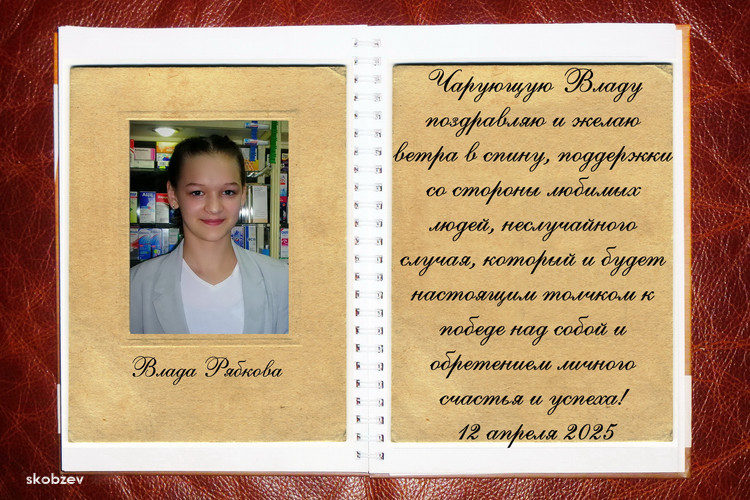 Влада Рябкова
Чарующую Владу
поздравляю и желаю
ветра в спину, поддержки
со стороны любимых
людей, неслучайного
случая, который и будет
настоящим толчком к
победе над собой и
обретением личного
счастья и успеха!
12 апреля 2025
skobzev